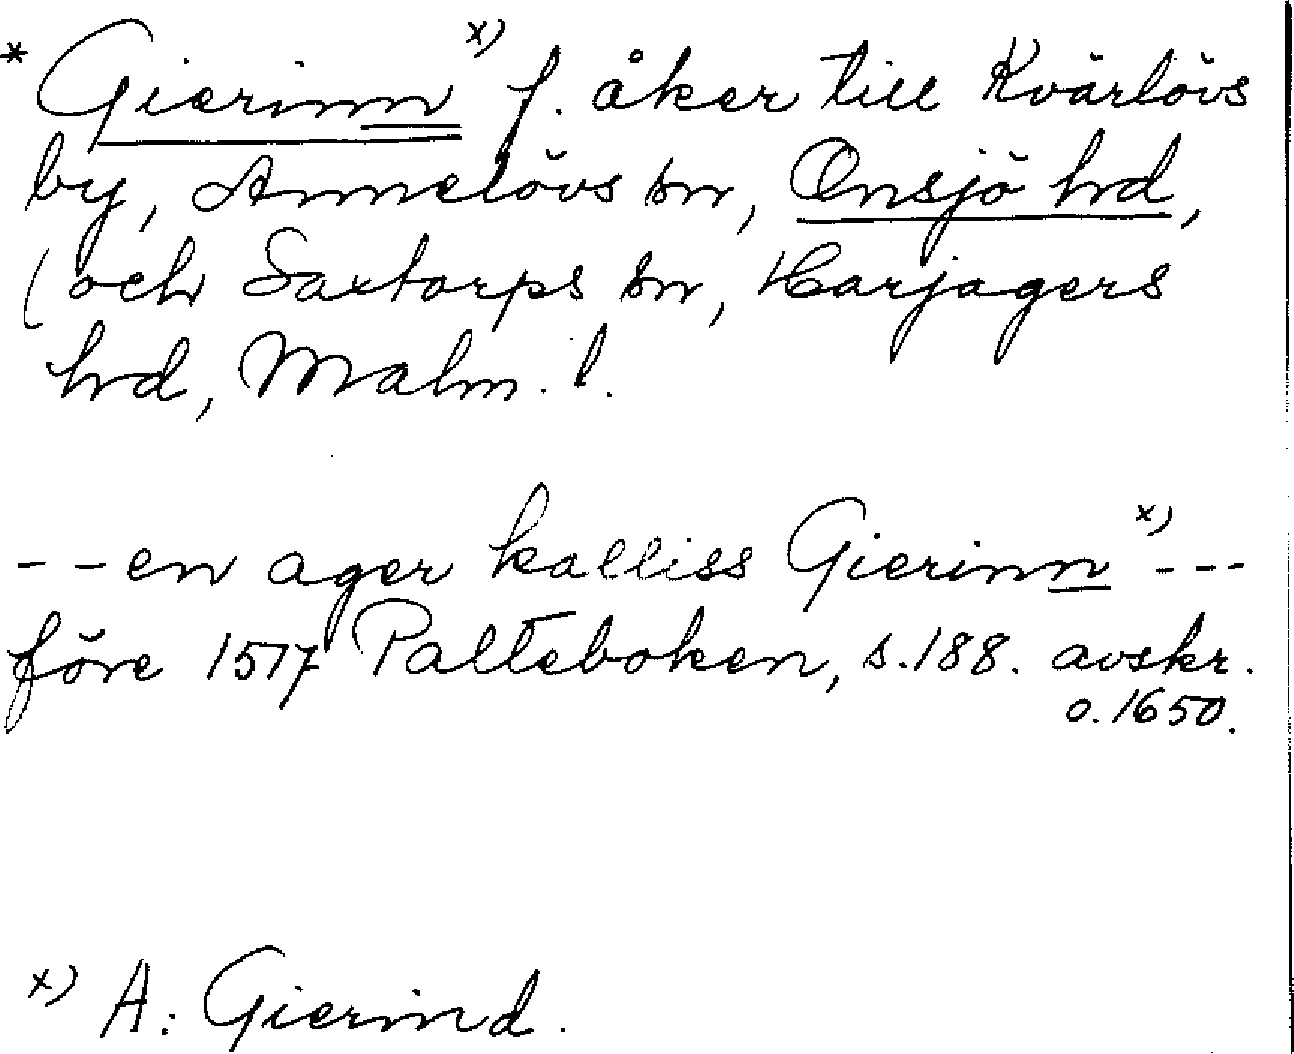 * Gierinn x) f. åker till Kvärlövs
by, Annelövs sn, Onsjö hrd,
(och Saxtorps sn, Harjagers
hrd, Malm. l.
--en ager kalliss Gierinn x) ---
före 1517 Palteboken, s.188. avskr.
o.1650.
x) A: Gierind.